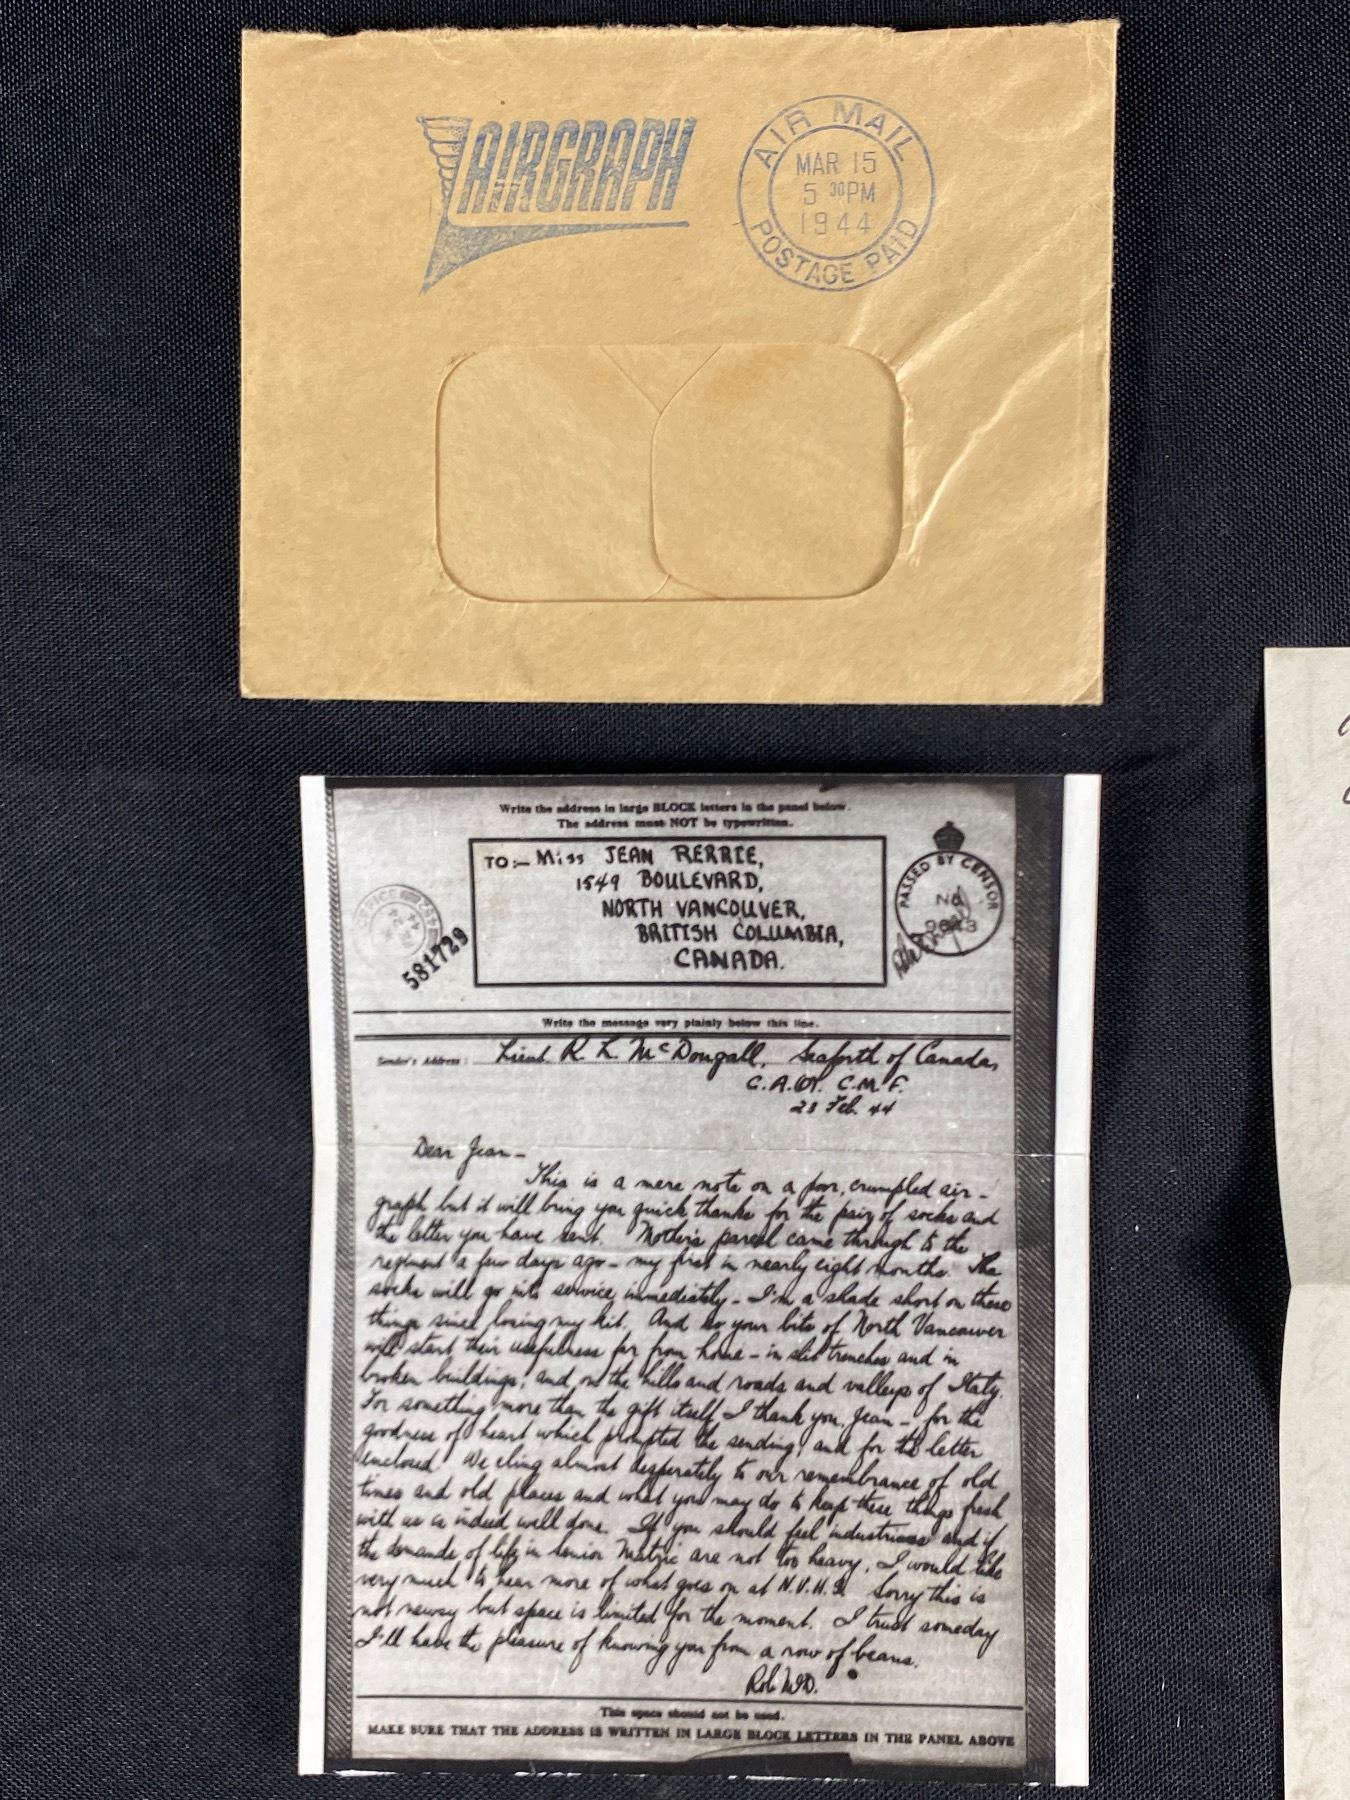 AIRGRAPH
AIR MAIL
MAR 15
5 30PM
1944
POSTAGE PAID
Write the address in large BLOCK letters in the panel below.
The address must NOT be typewritten.
TO:— Miss JEAN RERRIE,
1549 BOULEVARD,
NORTH VANCOUVER,
BRITISH COLUMBIA,
CANADA.
OFFICE
581729
PASSED BY CENSOR
No
Write the message very plainly below this line.
Sender's Address: Lieut. R. L. McDougall, Seaforth of Canada,
C.M.F.
Feb. 44
Dear Jean—
This is a mere note on a poor, crumpled air-
graph but it will bring you quick thanks for the pair of socks and
the letter you have sent. Mother's parcel came through to the
regiment a few days ago — my first in nearly eight months. The
socks will go into service immediately — I'm a shade short on these
things since losing my kit. And so your bits of North Vancouver
will start their usefulness far from home — in slit trenches and in
broken buildings, and on the hills and roads and valleys of Italy.
For something more than the gift itself, I thank you, Jean — for the
goodness of heart which prompted the sending, and for the letter
enclosed. We cling almost desperately to our remembrance of old
times and old places and what you may do to keep these things fresh
with us is indeed well done. If you should feel industrious and if
the demands of life in Senior Matric are not too heavy, I would like
very much to hear more of what goes on at N.V.H.S. Sorry this is
not newsy but space is limited for the moment. I trust someday
I'll have the pleasure of knowing you from a row of beans.
Rob McD.
This space should not be used.
MAKE SURE THAT THE ADDRESS IS WRITTEN IN LARGE BLOCK LETTERS IN THE PANEL ABOVE